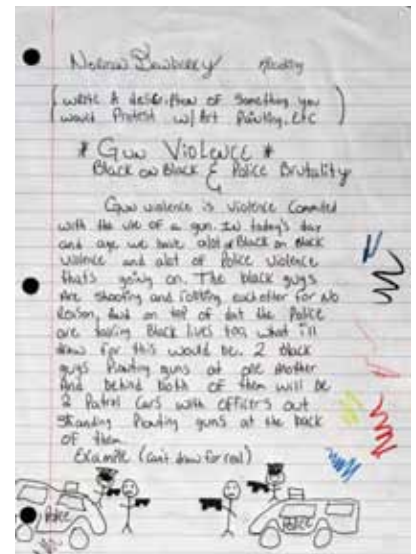 Norman Dewberry Monday
(write A description of something you
would Protest w/ Art Painting, etc)
* Gun Violence *
Black on Black & Police Brutality
Gun violence is violence Commited
with the use of a gun. In today's day
and age we have alot of Black on Black
violence and alot of Police Violence
that's going on. The black guys
Are shooting and robbing eachother for No
Reason, And on top of dat the Police
are taking Black lives too, what i'll
draw for this would be. 2 Black
guys Pointing guns at one Another
And behind both of them will be
2 Patrol Cars with officers out
Standing Pointing guns at the back
of them
Example (can't draw for real)
Police
Police